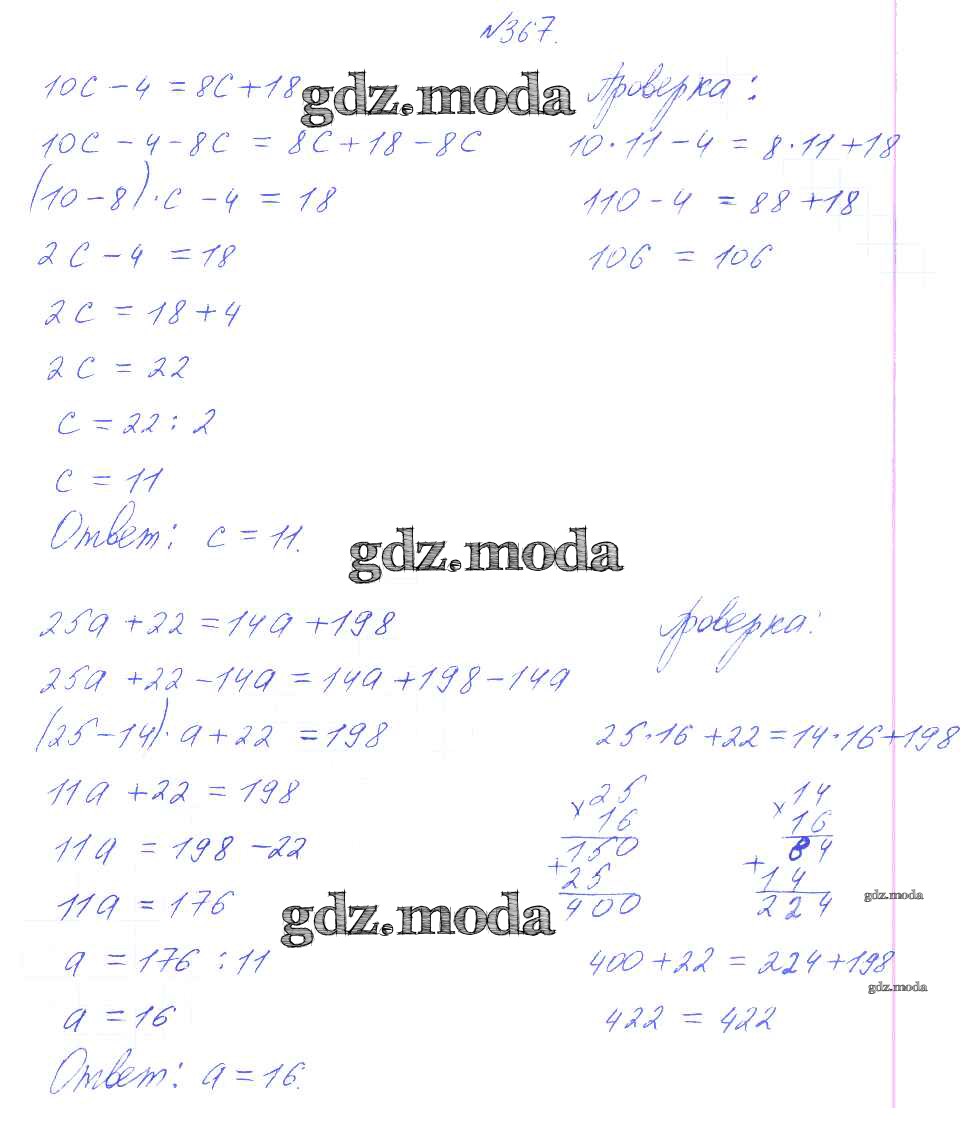 №367.
10c - 4 = 8c + 18
10c - 4 - 8c = 8c + 18 - 8c
(10 - 8) · c - 4 = 18
2c - 4 = 18
2c = 18 + 4
2c = 22
c = 22 : 2
c = 11
Ответ: c = 11.
Проверка:
10 · 11 - 4 = 8 · 11 + 18
110 - 4 = 88 + 18
106 = 106
gdz.moda
gdz.moda
25a + 22 = 14a + 198
25a + 22 - 14a = 14a + 198 - 14a
(25 - 14) · a + 22 = 198
11a + 22 = 198
11a = 198 - 22
11a = 176
a = 176 : 11
a = 16
Ответ: a = 16.
Проверка:
25 · 16 + 22 = 14 · 16 + 198
× 25
16
150
+ 25
400
× 14
16
84
+ 14
224
400 + 22 = 224 + 198
422 = 422
gdz.moda
gdz.moda
gdz.moda